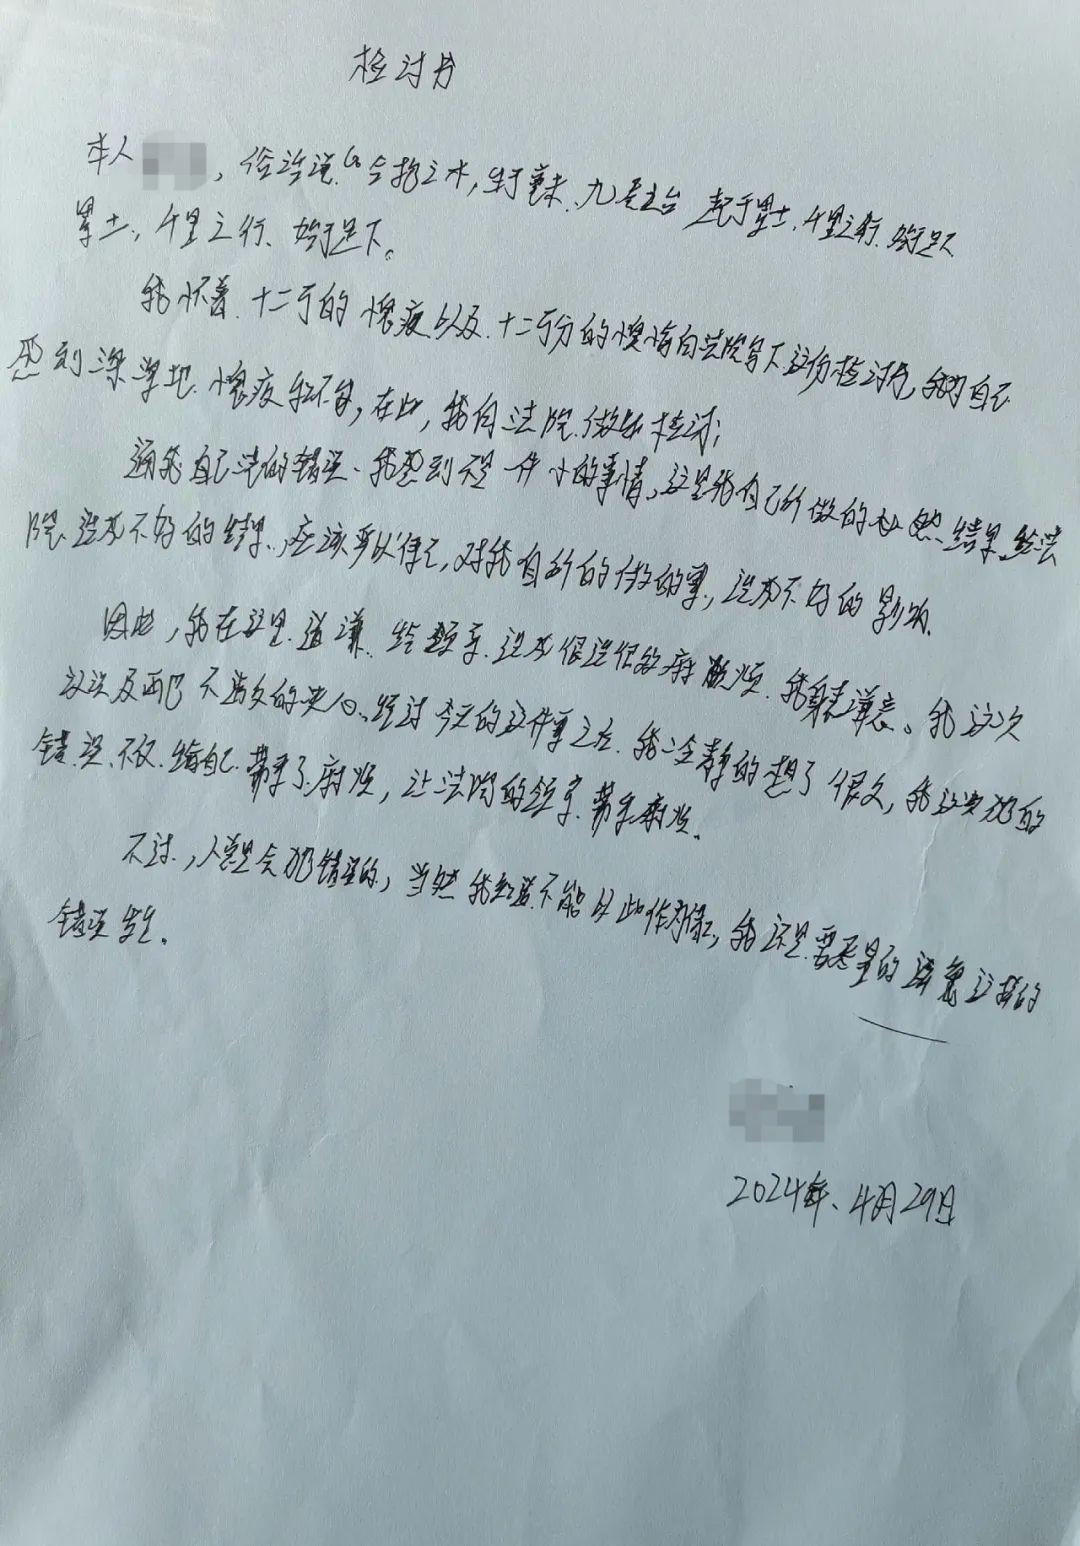 检讨书
本人，俗话说“合抱之木，生于毫末、九层之台 起于累土，千里之行、始于足下
累土，千里之行、始于足下。
我怀着十二分的愧疚以及十二万分的懊悔向法院写下这份检讨书，我对自己
感到深深地愧疚和不安，在此，我向法院做出检讨：
通我自己的错误、我感到不是一件小的事情，这是我自己所做的必然结果，给法
院造成不好的结果，应该要以停之，对我自所的做的事，造成不好的影响。
因此，我在这里道谦，给领导造成很很的麻烦，我表谦意。我这次
不当的、经过今天的这件事之后，我冷静的想了很久，我这次犯的
错误不仅给自己带来了麻烦，让法院的领导带来麻烦。
不过，人总是会犯错误的，当然我知道不能以此作为借口，我还是要尽量的避免这样的
错误发生。
2024年、4月29日